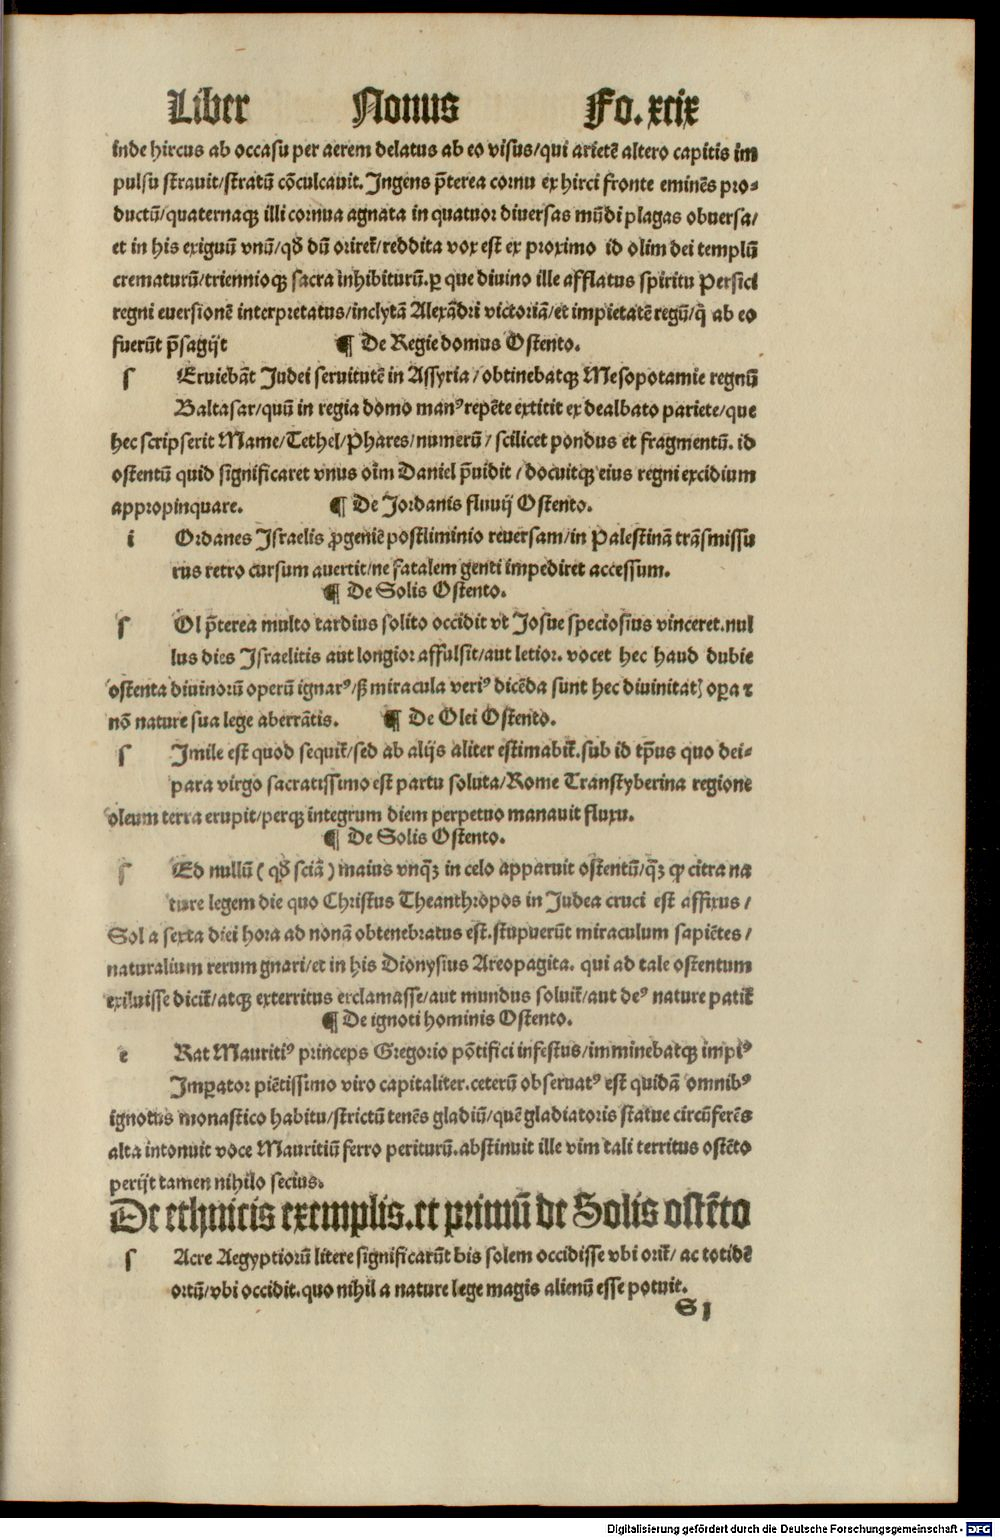 Liber Nonus Fo. xcix
inde hircus ab occasu per aerem delatus ab eo visus/qui arietē altero capitis im
pulsu stravit/stratū cōculcavit. Ingens p̄terea cornu ex hirci fronte eminēs pro-
ductū/quaternaqꝫ illi cornua agnata in quatuor diversas mūdi plagas obversa/
et in his exiguū vnū/qđ dū orireť/reddita vox est ex proximo id olim dei templū
crematurū/triennioqꝫ sacra inhibiturū. ꝑ que divino ille afflatus spiritu Persici
regni eversionē interpretatus/inclytā Alexādri victoriā/et impietatē regū/q̄ ab eo
fuerūt p̄sagijt ¶ De Regie domus Ostento.
s Erviebāt Iudei servitutē in Assyria/obtinebatqꝫ Mesopotamie regnū
Baltasar/quū in regia domo manꝰ repēte extitit ex dealbato pariete/que
hec scripserit Mame/Tethel/Phares/numerū/scilicet pondus et fragmentū. id
ostentū quid significaret vnus oīm Daniel p̄vidit/docuitqꝫ eius regni excidium
appropinquare. ¶ De Jordanis fluvij Ostento.
i Ordanes Israelis ꝓgeniē postliminio reversam/in Palestinā trāsmissu
rus retro cursum avertit/ne fatalem genti impediret accessum.
¶ De Solis Ostento.
s Ol p̄terea multo tardius solito occidit vt Iosue speciosius vinceret. nul
lus dies Israelitis aut longior affulsit/aut letior. vocet hec haud dubie
ostenta divinorū operū ignarꝰ/ß miracula veriꝰ dicēda sunt hec divinitatꝭ oꝑa ⁊
nō nature sua lege aberrātis. ¶ De Olei Ostento.
s Imile est quod sequiť/sed ab alijs aliter estimabiť. sub id tp̄us quo dei-
para virgo sacratissimo est partu soluta/Rome Transtyberina regione
oleum terra erupit/perqꝫ integrum diem perpetuo manavit fluxu.
¶ De Solis Ostento.
s Ed nullū (qđ sciā) maius vnq̄ꝫ in celo apparuit ostentū/q̄ꝫ ꝙ citra na
ture legem die quo Christus Theanthropos in Iudea cruci est affixus/
Sol a sexta diei hora ad nonā obtenebratus est. stupuerūt miraculum sapiētes/
naturalium rerum gnari/et in his Dionysius Areopagita. qui ad tale ostentum
exiluisse diciť/atqꝫ exterritus exclamasse/aut mundus solviť/aut deꝰ nature patiť
¶ De ignoti hominis Ostento.
e Rat Mauritiꝰ princeps Gregorio pōtifici infestus/imminebatqꝫ impiꝰ
Imꝑator piētissimo viro capitaliter. ceterū observatꝰ est quidā omnibꝰ
ignotus monastico habitu/strictū tenēs gladiū/quē gladiatoris statue circūferēs
alta intonuit voce Mauritiū ferro periturū. abstinuit ille vim tali territus ostēto
perijt tamen nihilo secius.
De ethnicis exemplis. et primū de Solis ostēto
s Acre Aegyptiorū litere significarūt bis solem occidisse vbi oriť/ac totidē
ortū/vbi occidit. quo nihil a nature lege magis alienū esse potuit.
S I
Digitalisierung gefördert durch die Deutsche Forschungsgemeinschaft - DFG